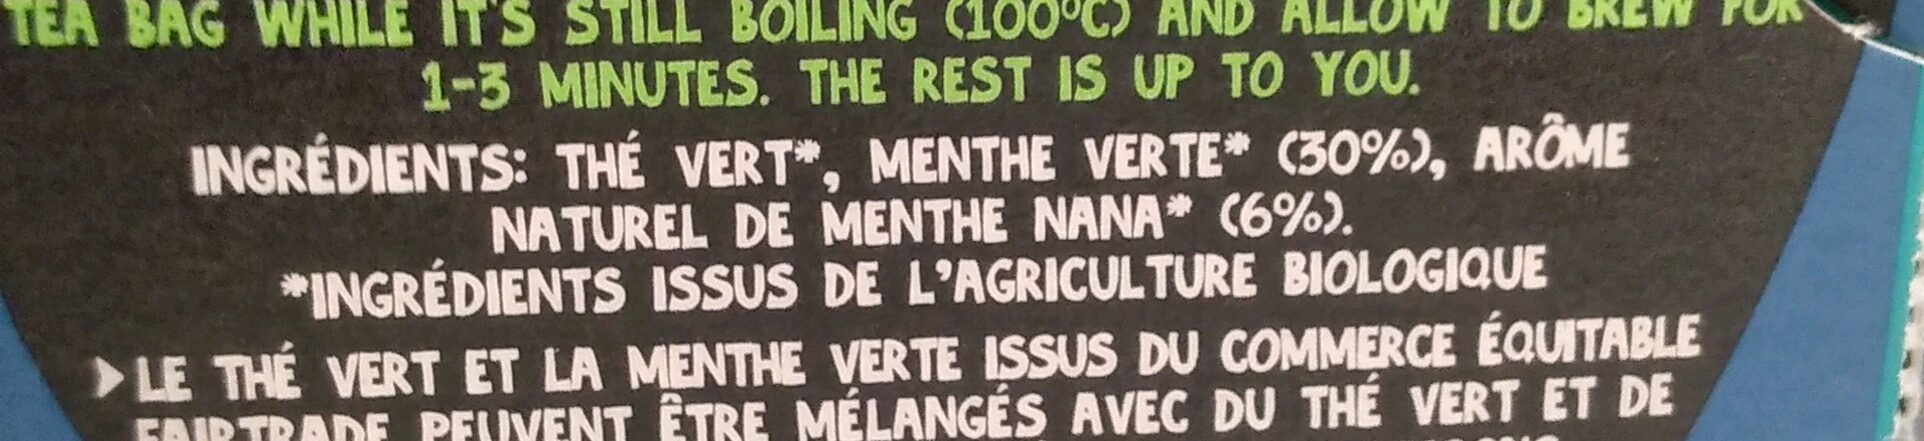 TEA BAG WHILE IT'S STILL BOILING (100°C) AND ALLOW TO BREW FOR
1-3 MINUTES. THE REST IS UP TO YOU.
INGRÉDIENTS: THÉ VERT*, MENTHE VERTE* (30%), ARÔME
NATUREL DE MENTHE NANA* (6%).
*INGRÉDIENTS ISSUS DE L'AGRICULTURE BIOLOGIQUE
LE THÉ VERT ET LA MENTHE VERTE ISSUS DU COMMERCE ÉQUITABLE
FAIRTRADE PEUVENT ÊTRE MÉLANGÉS AVEC DU THÉ VERT ET DE